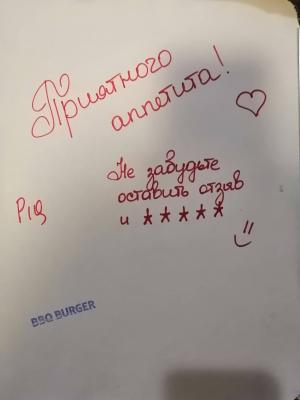 Приятного
аппетита!
Не забудьте
оставить отзыв
и *****
Pig
BBQ BURGER